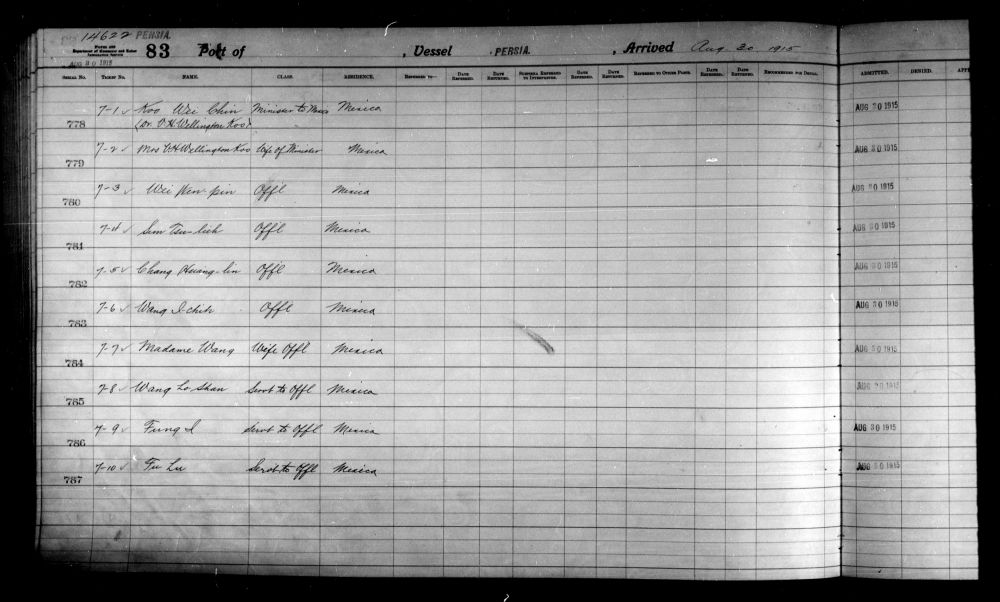 14622 PERSIA
83 Port of , Vessel PERSIA , Arrived Aug 30, 1915
Department of Commerce and Labor
AUG 30 1915
SERIAL No. TICKET No. NAME. CLASS. RESIDENCE. REFERRED TO— DATE REFERRED. DATE RETURNED. DATE REFERRED. DATE RETURNED. REFERRED TO OTHER PLACE. DATE REFERRED. DATE RETURNED. RECOMMENDED FOR DENIAL. ADMITTED. DENIED.
778 7-1 ✓ Koo Wei Chin Minister to Mexico Mexico AUG 30 1915
(Dr. V.H. Wellington Koo)
779 7-2 ✓ Mrs V.H. Wellington Koo Wife of Minister Mexico AUG 30 1915
780 7-3 ✓ Wei Wen-pin Offl Mexico AUG 30 1915
781 7-4 ✓ Offl Mexico AUG 30 1915
782 7-5 ✓ Chang Offl Mexico AUG 30 1915
783 7-6 ✓ Wang I-chih Offl Mexico AUG 30 1915
784 7-7 ✓ Madame Wang Wife Offl Mexico AUG 30 1915
785 7-8 ✓ Wang Lo Shan Servt to Offl Mexico AUG 30 1915
786 7-9 ✓ Fung I Servt to Offl Mexico AUG 30 1915
787 7-10 ✓ Fu Lu Servt to Offl Mexico AUG 30 1915